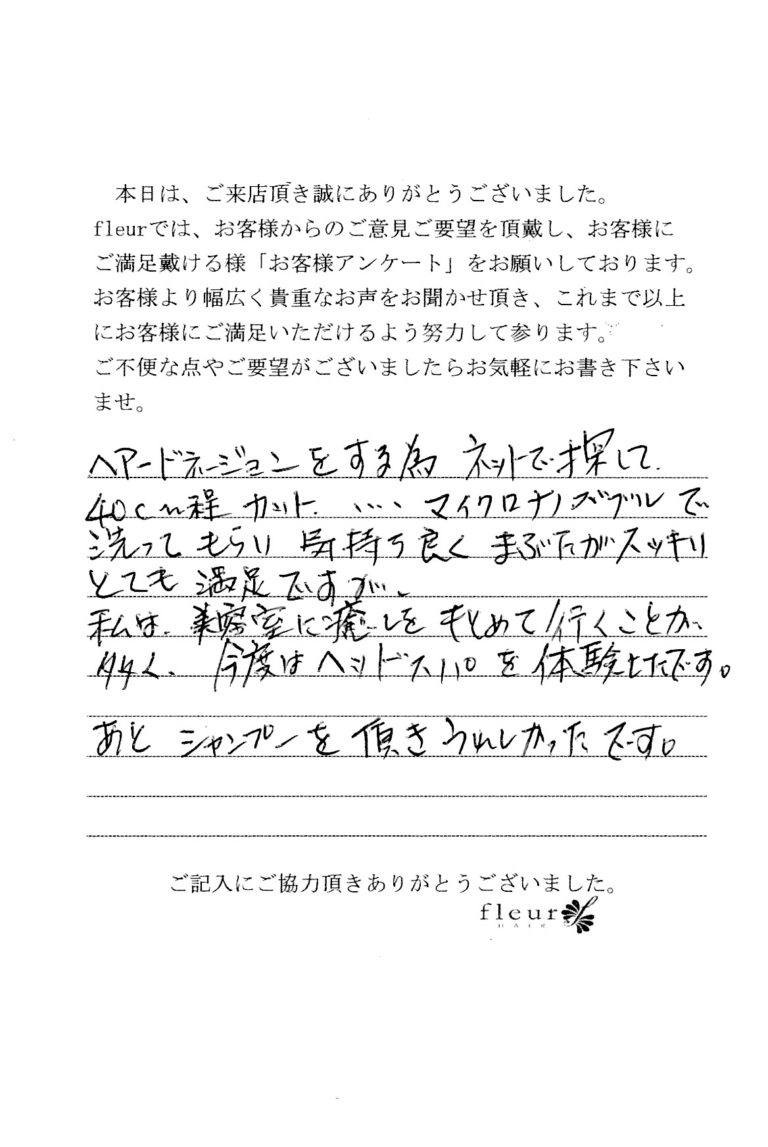 本日は、ご来店頂き誠にありがとうございました。
fleurでは、お客様からのご意見ご要望を頂戴し、お客様に
ご満足戴ける様「お客様アンケート」をお願いしております。
お客様より幅広く貴重なお声をお聞かせ頂き、これまで以上
にお客様にご満足いただけるよう努力して参ります。
ご不便な点やご要望がございましたらお気軽にお書き下さい
ませ。
ヘアードネージョンをする為 ネットで探して、
40cm程 カット、…. マイクロナノズブルで
洗って もらい 気持ち良く まぶたがスッキリ
とても 満足ですが、
私は、美容室に癒しを もとめて行くことが、
多く、 今度はヘッドスパを 体験したいです。
あと シャンプーを 頂き うれしかったです。
ご記入にご協力頂きありがとうございました。
fleur
HAIR